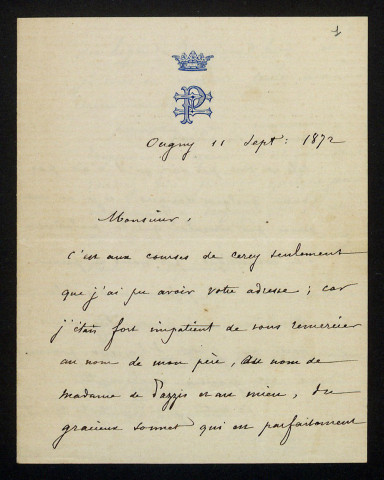 1
PF
Ougny 11 Sept: 1872
Monsieur,
C'est aux courses de Cercy seulement
que j'ai pu avoir votre adresse; car
j'étais fort impatient de vous remercier
au nom de mon père, au nom de
Madame de Pazzis et au mien, du
gracieux sonnet qui est parfaitement